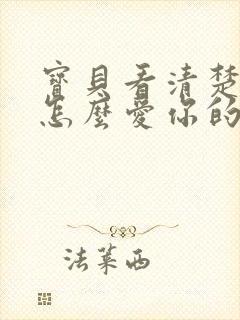 寶貝看清楚
怎麼愛你的
法萊西